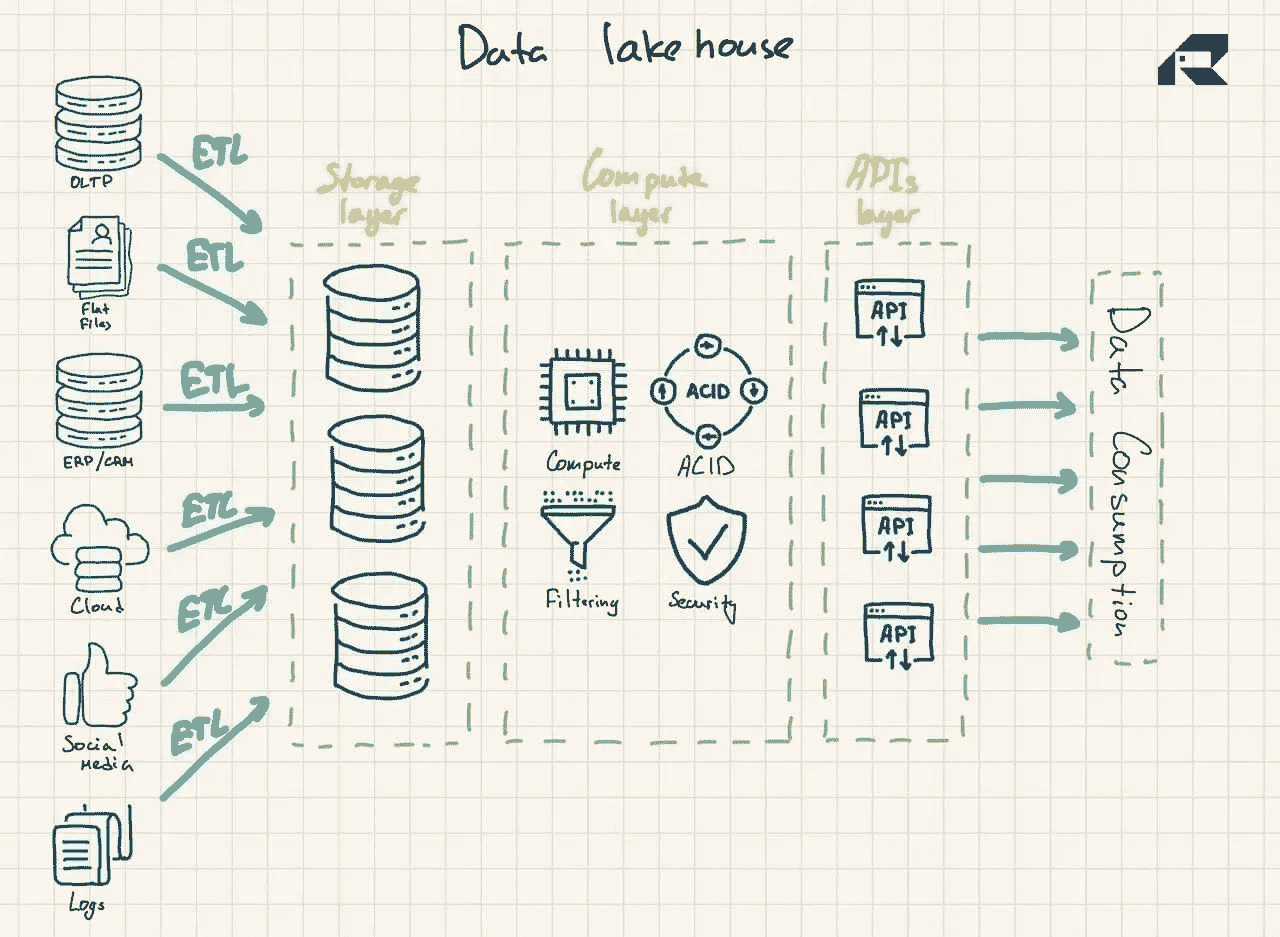 Data lakehouse
OLTP
ETL
Flat
Files
ETL
ERP/CRM
ETL
Cloud
ETL
Social
Media
ETL
Logs
ETL
Storage
layer
Compute
layer
Compute
ACID
ACID
Filtering
Security
APIs
layer
API
API
API
API
Data Consumption